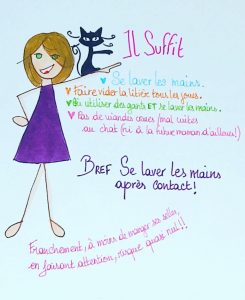 Il Suffit
Se laver les mains.
Faire vider la litière tous les jours.
Ou utiliser des gants ET se laver les mains.
Pas de viandes crues/mal cuites
au chat (ni à la future maman d'ailleurs!)
Bref Se laver les mains
après contact!
Franchement, à moins de manger ses selles,
en faisant attention, risque quasi nul!!